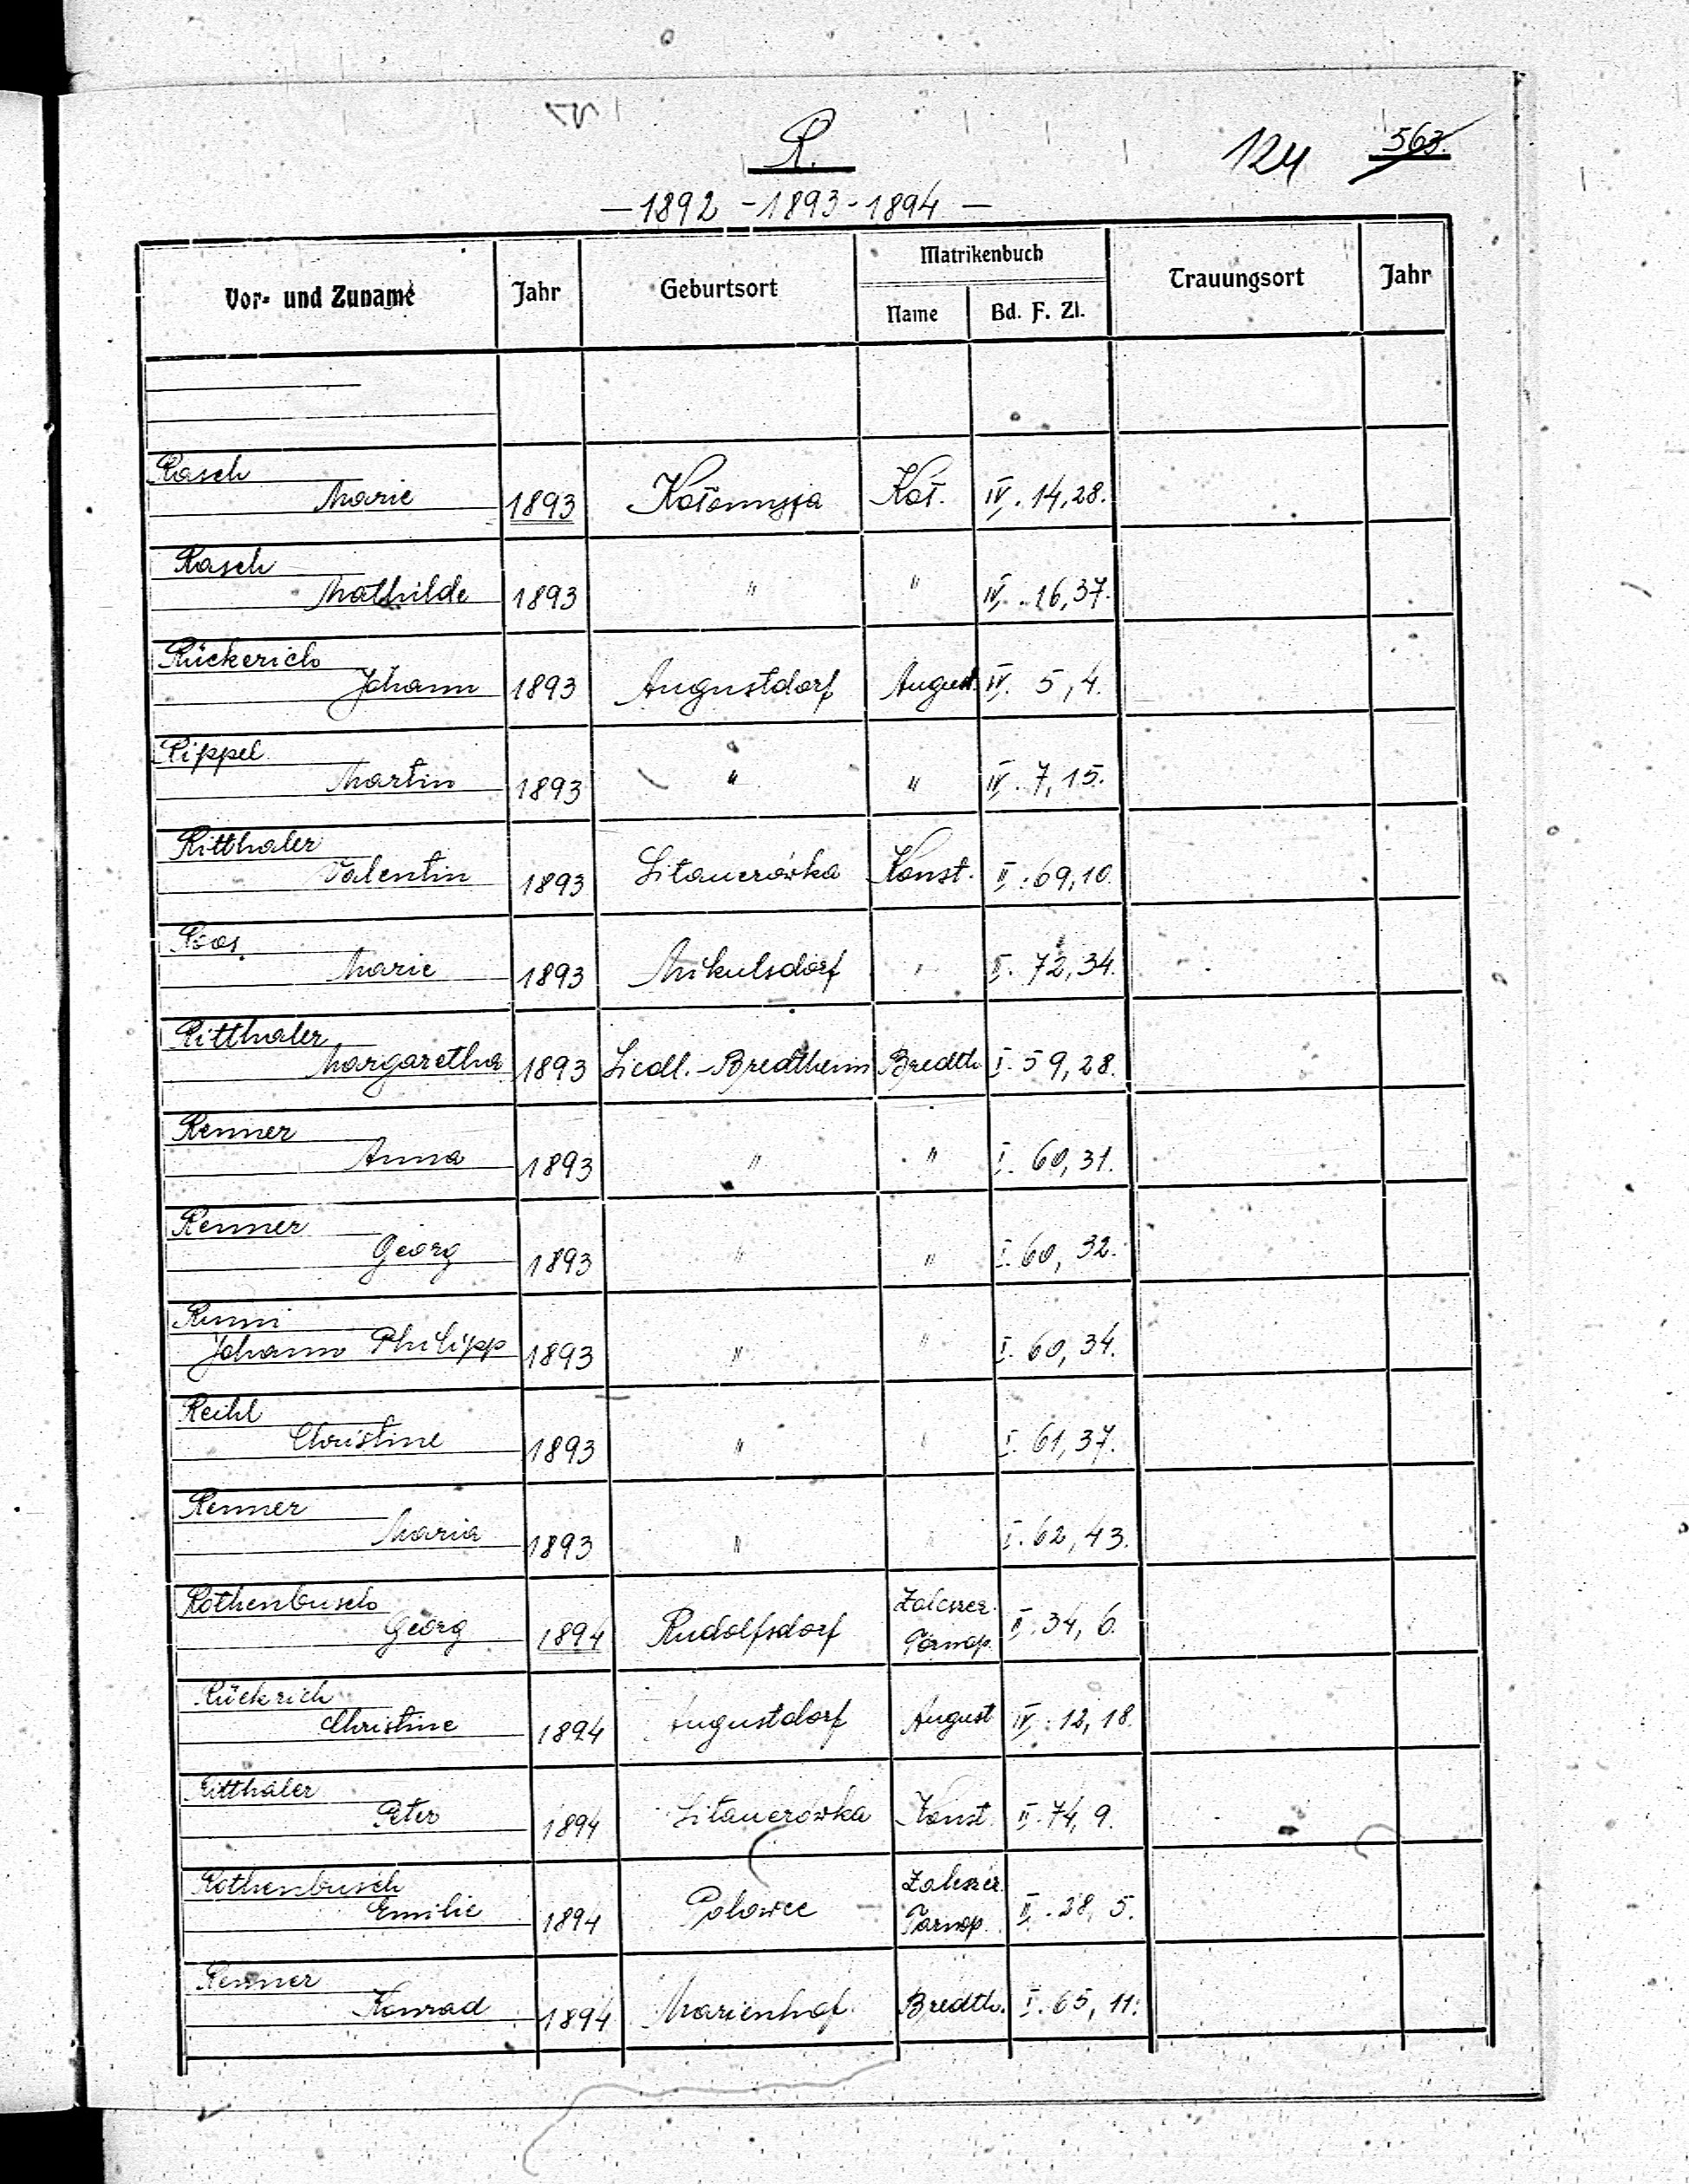 R.
124 563.
— 1892 - 1893 - 1894 —
Vor- und Zuname Jahr Geburtsort Matrikenbuch Trauungsort Jahr
Name Bd. F. Zl.
Rasch
Marie 1893 Kołomyja Koł. IV. 14, 28.
Rasch
Mathilde 1893 " " IV. 16, 37.
Rückerich
Johann 1893 Augustdorf August. IV. 5, 4.
Rippel
Martin 1893 " " IV. 7, 15.
Ritthaler
Valentin 1893 Sitauerówka Konst. II. 69, 10.
Roos
Marie 1893 Mikulsdorf " II. 72, 34.
Ritthaler
Margaretha 1893 Siedl.-Bredtheim Bredth. I. 59, 28.
Renner
Anna 1893 " " I. 60, 31.
Renner
Georg 1893 " " I. 60, 32.
Johann Philipp 1893 " " I. 60, 34.
Reihl
Christine 1893 " " I. 61, 37.
Renner
Maria 1893 " " I. 62, 43.
Rothenbusch
Georg 1894 Rudolfsdorf Zaleszcz. Tarnop. II. 34, 6.
Rückrich
Christine 1894 Augustdorf August IV. 12, 18.
Ritthaler
Peter 1894 Sitauerówka Konst. II. 74, 9.
Rothenbusch
Emilie 1894 Polowce Zaleszcz. Tarnop. II. 28, 5.
Renner
Konrad 1894 Marienhof Bredth. I. 65, 11.